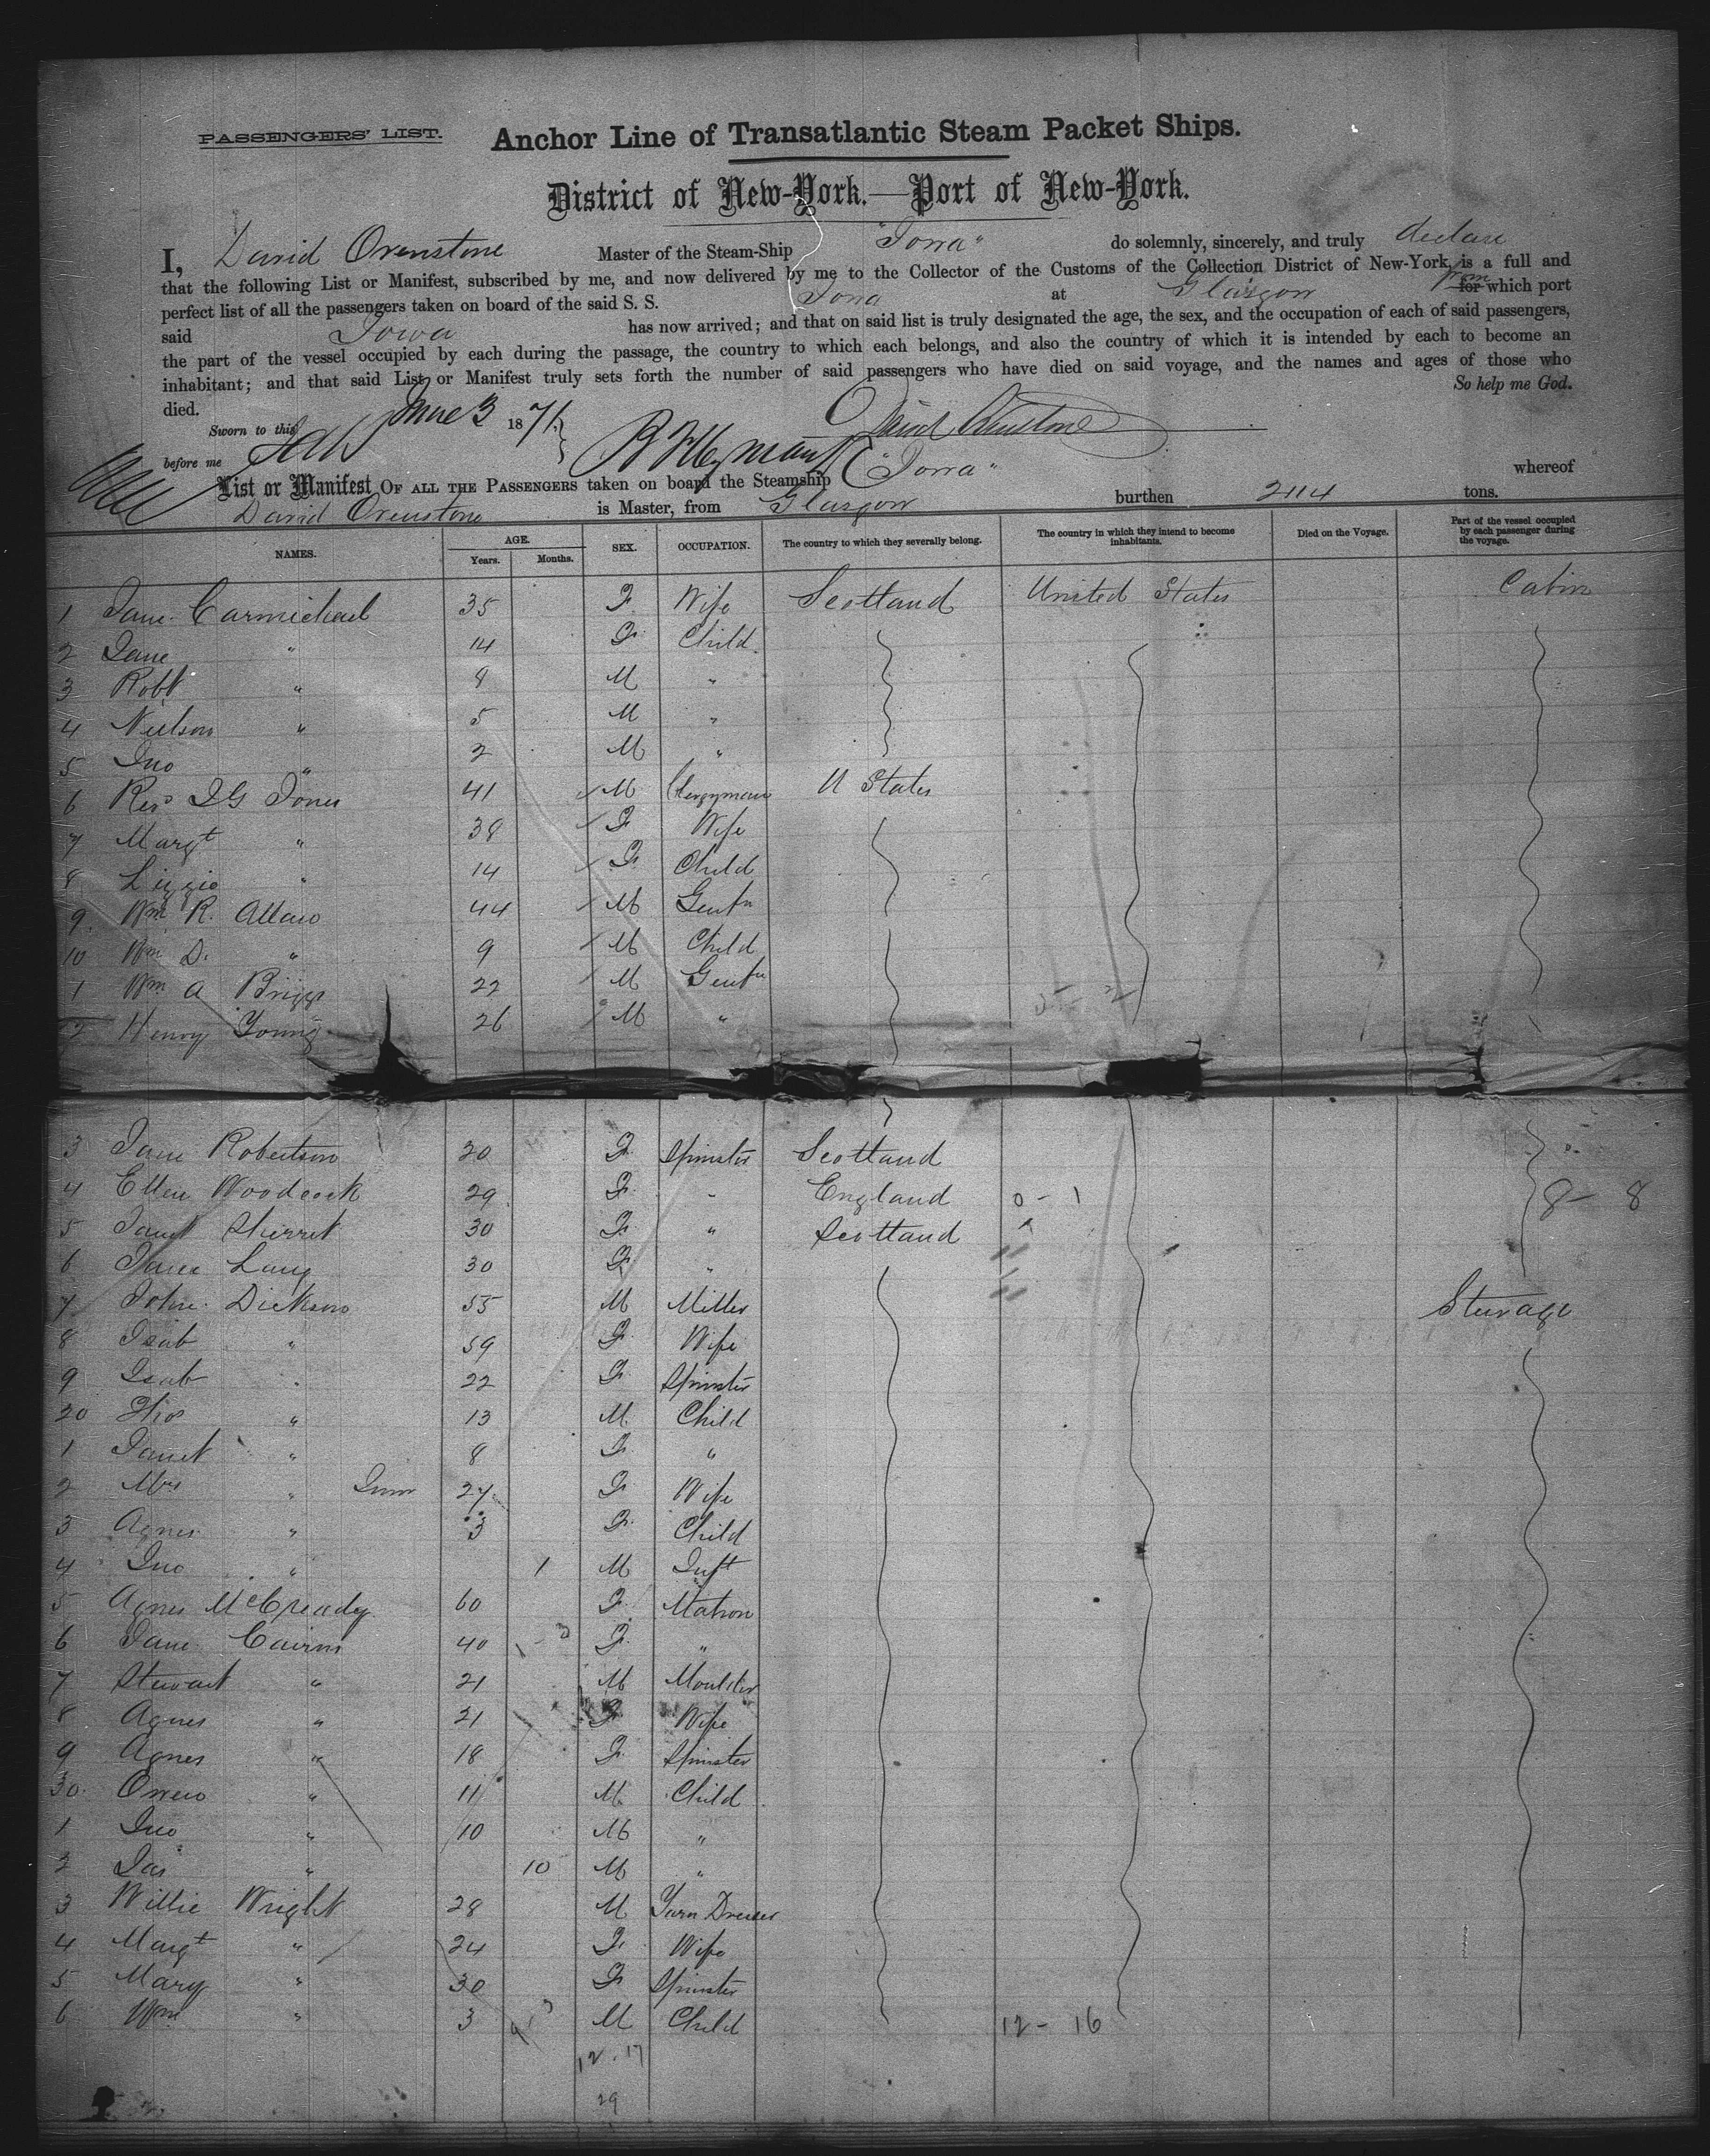 PASSENGERS' LIST.
Anchor Line of Transatlantic Steam Packet Ships.
District of New-York.—Port of New-York.
I, David Ovenstone Master of the Steam-Ship "Iowa" do solemnly, sincerely, and truly declare
that the following List or Manifest, subscribed by me, and now delivered by me to the Collector of the Customs of the Collection District of New-York, is a full and
perfect list of all the passengers taken on board of the said S. S. Iowa at Glasgow from for which port
said Iowa has now arrived; and that on said list is truly designated the age, the sex, and the occupation of each of said passengers,
the part of the vessel occupied by each during the passage, the country to which each belongs, and also the country of which it is intended by each to become an
inhabitant; and that said List or Manifest truly sets forth the number of said passengers who have died on said voyage, and the names and ages of those who
died. So help me God.
Sworn to this June 3 1871. David Ovenstone
before me
List or Manifest OF ALL THE PASSENGERS taken on board the Steamship "Iowa" whereof
David Ovenstone is Master, from Glasgow burthen 2114 tons.
NAMES. AGE. Years. Months. SEX. OCCUPATION. The country to which they severally belong. The country in which they intend to become inhabitants. Died on the Voyage. Part of the vessel occupied by each passenger during the voyage.
1 Jane Carmichael 35 F Wife Scotland United States Cabin
2 Jane " 14 F Child
3 Robt " 8 M "
4 Neilson " 5 M "
5 Jno " 2 M "
6 Revd J G Jones 41 M Clergyman U States
7 Margt " 38 F Wife
8 Lizzie " 14 F Child
9 Wm R. Allan 44 M Gentn
10 Wm D. " 9 M Child
1 Wm A Briggs 22 M Gentn
2 Henry Young 26 M "
3 Jane Robertson 20 F Spinster Scotland
4 Ellen Woodcock 29 F " England 0 - 1 8 - 8
5 Janet Sherret 30 F " Scotland
6 Jane Lang 30 F "
7 John Dickson 55 M Miller Sterage
8 Isab " 59 F Wife
9 Isab " 22 F Spinster
20 Thos " 13 M Child
1 Janet " 8 F "
2 Mrs " Junr 27 F Wife
3 Agnes " 3 F Child
4 Jno " 1 M Inft
5 Agnes McCready 60 F Matron
6 Jane Cairns 40 F "
7 Stewart " 21 M Moulder
8 Agnes " 21 F Wife
9 Agnes " 18 F Spinster
30 Owen " 11 M Child
1 Jno " 10 M "
2 Jas " 10 M "
3 Willie Wright 28 M Yarn Dresser
4 Margt " 24 F Wife
5 Mary " 30 F Spinster
6 Wm " 3 M Child 12 - 16
12 . 17
29